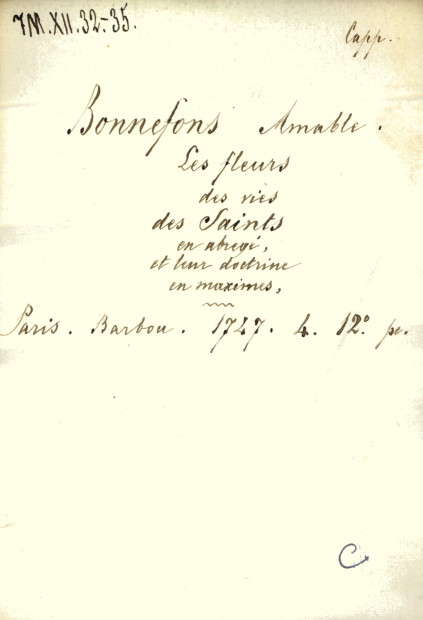 7M.XII.32-35.
Capp.
Bonnefons Amable.
Les fleurs
des vies
des Saints
en abregé,
et leur doctrine
en maximes,
Paris. Barbou. 1747. 4. 12° pc.
C